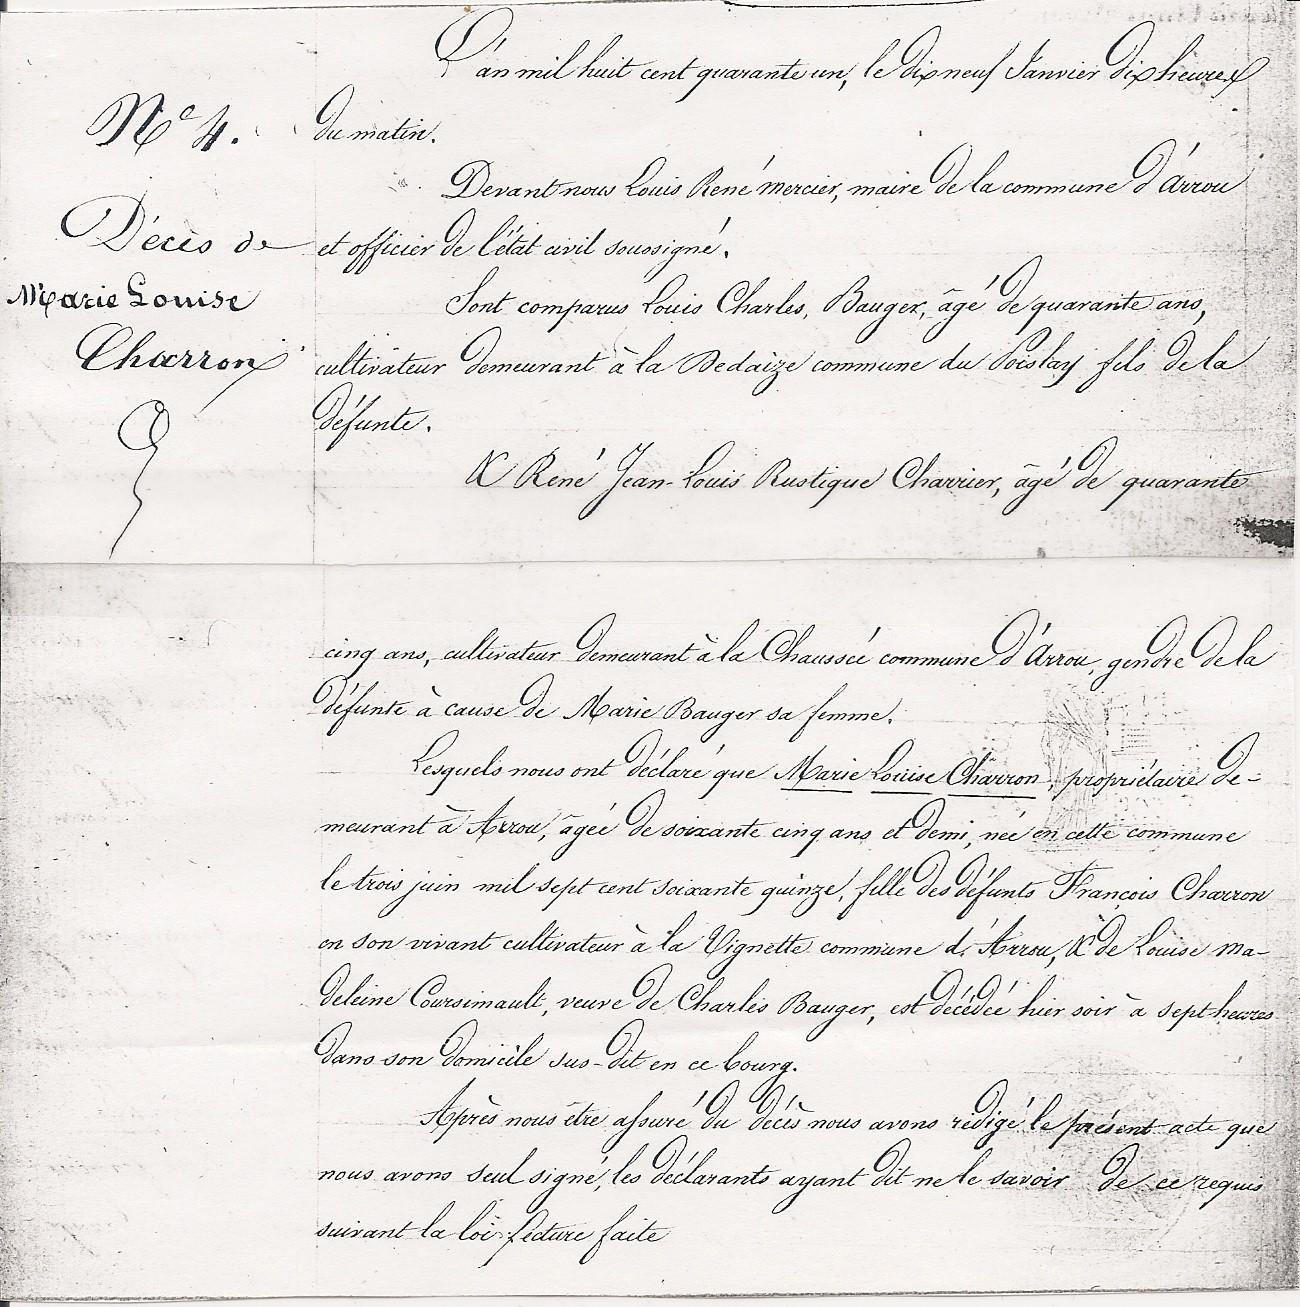 L'an mil huit cent quarante un, le dix neuf Janvier dix heures
du matin.
N° 4.
Devant nous Louis René mercier, maire de la commune d'Arrou
et officier de l'état civil soussigné.
Décès de
Marie Louise
Charron
Sont comparus Louis Charles, Bauger, âgé de quarante ans,
cultivateur demeurant à la Bedaize commune du Poislay fils de la
défunte.
& René Jean-Louis Rustique Charrier, âgé de quarante
cinq ans, cultivateur demeurant à la Chaussée commune d'Arrou, gendre de la
défunte à cause de Marie Bauger sa femme.
Lesquels nous ont déclaré que Marie Louise Charron, propriétaire de-
meurant à Arrou, âgée de soixante cinq ans et demi, née en cette commune
le trois juin mil sept cent soixante quinze, fille des défunts François Charron
en son vivant cultivateur à la Vignette commune d'Arrou, & de Louise ma-
deleine Coursimault, veuve de Charles Bauger, est décédée hier soir à sept heures
dans son domicile sus-dit en ce bourg.
Après nous être assuré du décès nous avons rédigé le présent acte que
nous avons seul signé, les déclarants ayant dit ne le savoir de ce requis
suivant la loi lecture faite